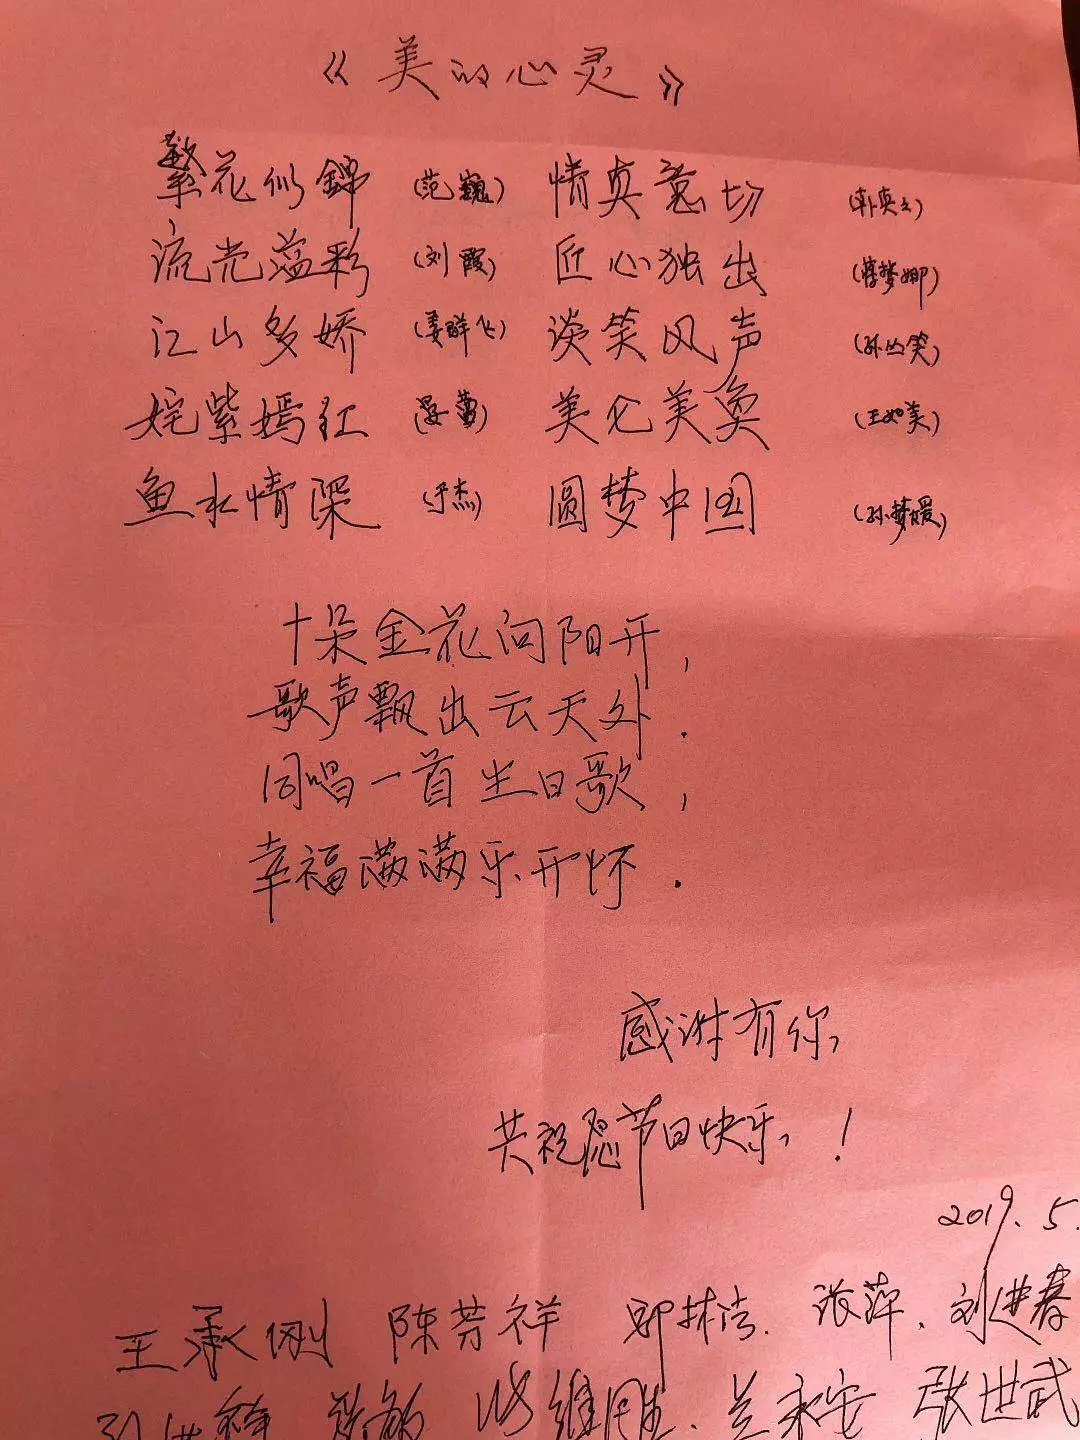 《美的心灵》
繁花似錦 (范巍) 情真意切 (朴贞玉)
流光溢彩 (刘霞) 匠心独出 (蒋梦娜)
江山多娇 (姜群飞) 谈笑风声 (孙丛笑)
姹紫嫣红 (晏蕾) 美仑美奂 (王如美)
鱼水情深 (于杰) 圆梦中国 (孙梦媛)
十朵金花向阳开,
歌声飘出云天外.
同唱一首生日歌,
幸福满满乐开怀.
感谢有你,
共祝愿节日快乐!
2019.5.
王承刚 陈芳祥 张萍. 刘进春
张世武